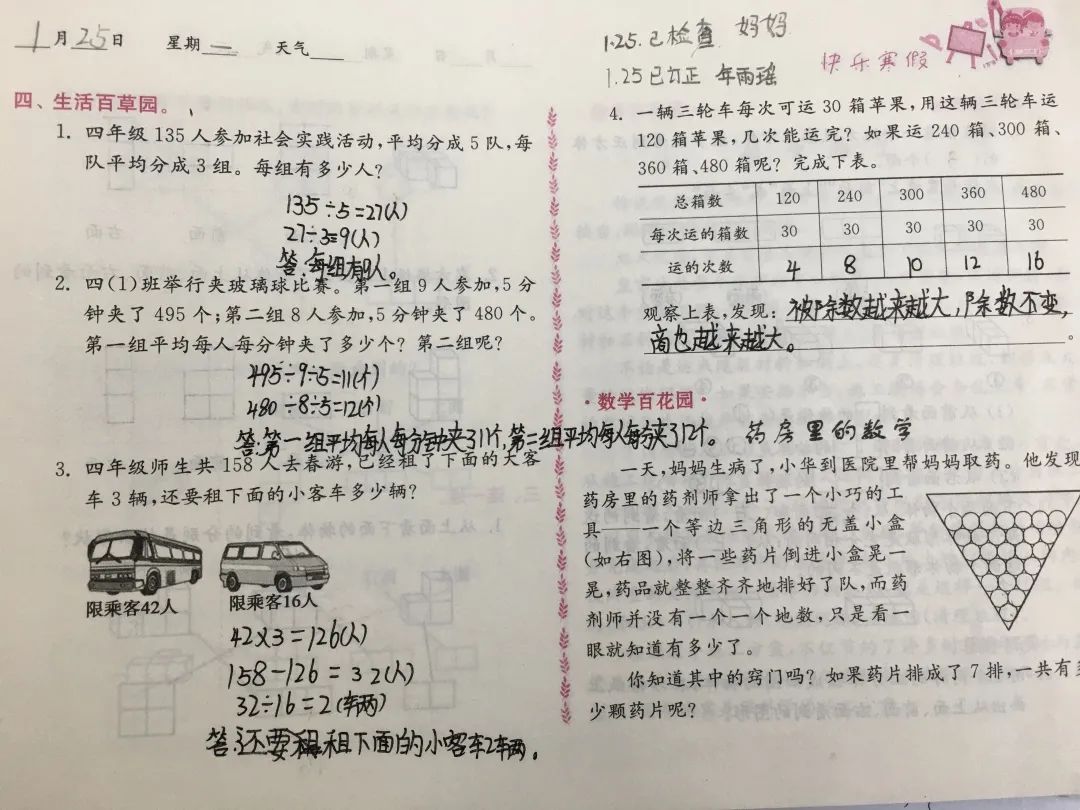 1月25日 星期一 天气
四、生活百草园。
1. 四年级135人参加社会实践活动,平均分成5队,每
队平均分成3组。每组有多少人?
135÷5=27(人)
27÷3=9(人)
答:每组有9人。
2. 四(1)班举行夹玻璃球比赛。第一组9人参加,5分
钟夹了495个;第二组8人参加,5分钟夹了480个。
第一组平均每人每分钟夹了多少个?第二组呢?
495÷9÷5=11(个)
480÷8÷5=12(个)
答:第一组平均每人每分钟夹了11个,第二组平均每人每分夹了12个。
3. 四年级师生共158人去春游,已经租了下面的大客
车3辆,还要租下面的小客车多少辆?
限乘客42人 限乘客16人
42×3=126(人)
158-126=32(人)
32÷16=2(车两)
答:还要租租下面的小客车2车两。
1.25.已检查 妈妈
1.25已订正 年雨瑶
快乐寒假
4. 一辆三轮车每次可运30箱苹果,用这辆三轮车运
120箱苹果,几次能运完?如果运240箱、300箱、
360箱、480箱呢?完成下表。
总箱数 120 240 300 360 480
每次运的箱数 30 30 30 30 30
运的次数 4 8 10 12 16
观察上表,发现:被除数越来越大,除数不变,
商也越来越大。
·数学百花园·
药房里的数学
一天,妈妈生病了,小华到医院里帮妈妈取药。他发现
药房里的药剂师拿出了一个小巧的工
具——一个等边三角形的无盖小盒
(如右图),将一些药片倒进小盒晃一
晃,药品就整整齐齐地排好了队,而药
剂师并没有一个一个地数,只是看一
眼就知道有多少了。
你知道其中的窍门吗?如果药片排成了7排,一共有多
少颗药片呢?